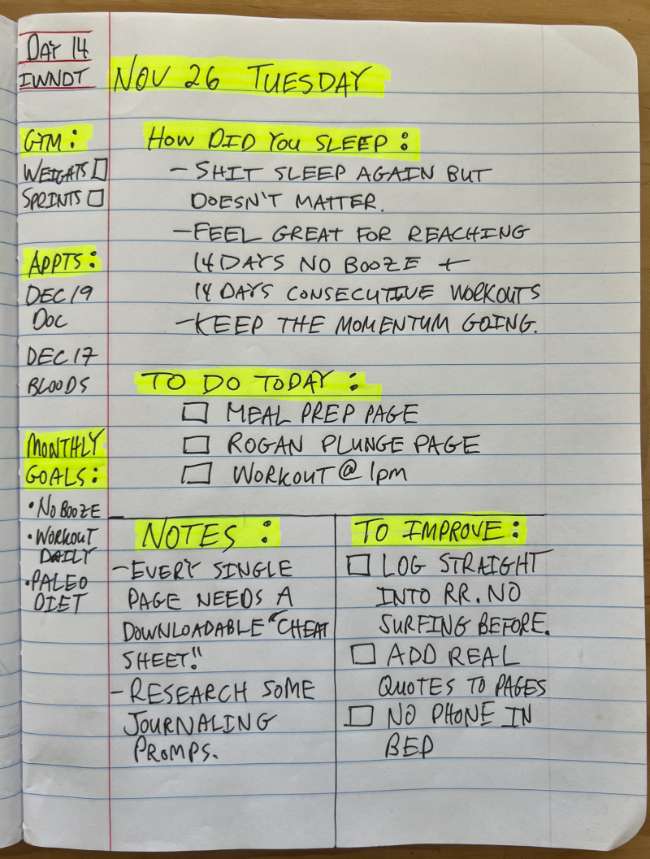 DAY 14
IWNDT
NOV 26 TUESDAY
GYM:
WEIGHTS
SPRINTS
APPTS:
DEC 19
DOC
DEC 17
BLOODS
MONTHLY
GOALS:
• NO BOOZE
• WORKOUT
DAILY
• PALEO
DIET
HOW DID YOU SLEEP:
- SHIT SLEEP AGAIN BUT
DOESN'T MATTER.
- FEEL GREAT FOR REACHING
14 DAYS NO BOOZE +
14 DAYS CONSECUTIVE WORKOUTS
- KEEP THE MOMENTUM GOING.
TO DO TODAY:
☐ MEAL PREP PAGE
☐ ROGAN PLUNGE PAGE
☐ WORKOUT @ 1pm
NOTES:
- EVERY SINGLE
PAGE NEEDS A
DOWNLOADABLE "CHEAT
SHEET."
- RESEARCH SOME
JOURNALING
PROMPS.
TO IMPROVE:
☐ LOG STRAIGHT
INTO RR. NO
SURFING BEFORE.
☐ ADD REAL
QUOTES TO PAGES
☐ NO PHONE IN
BED